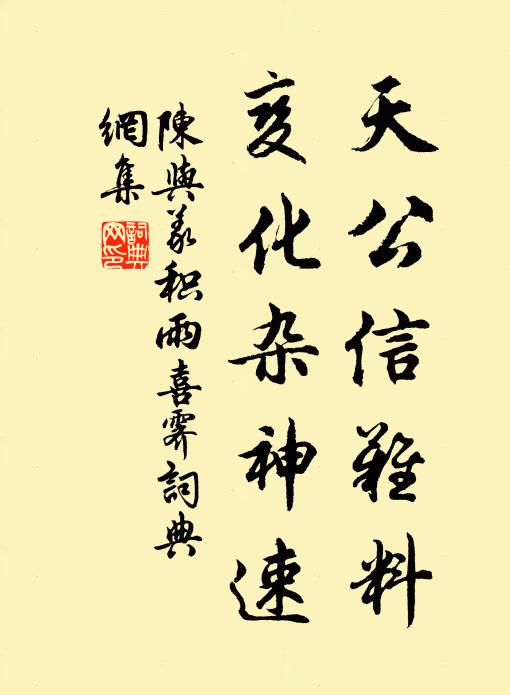 天公信難料
变化杂神速
陳與義积雨喜霽詞典
網集
詞典网印